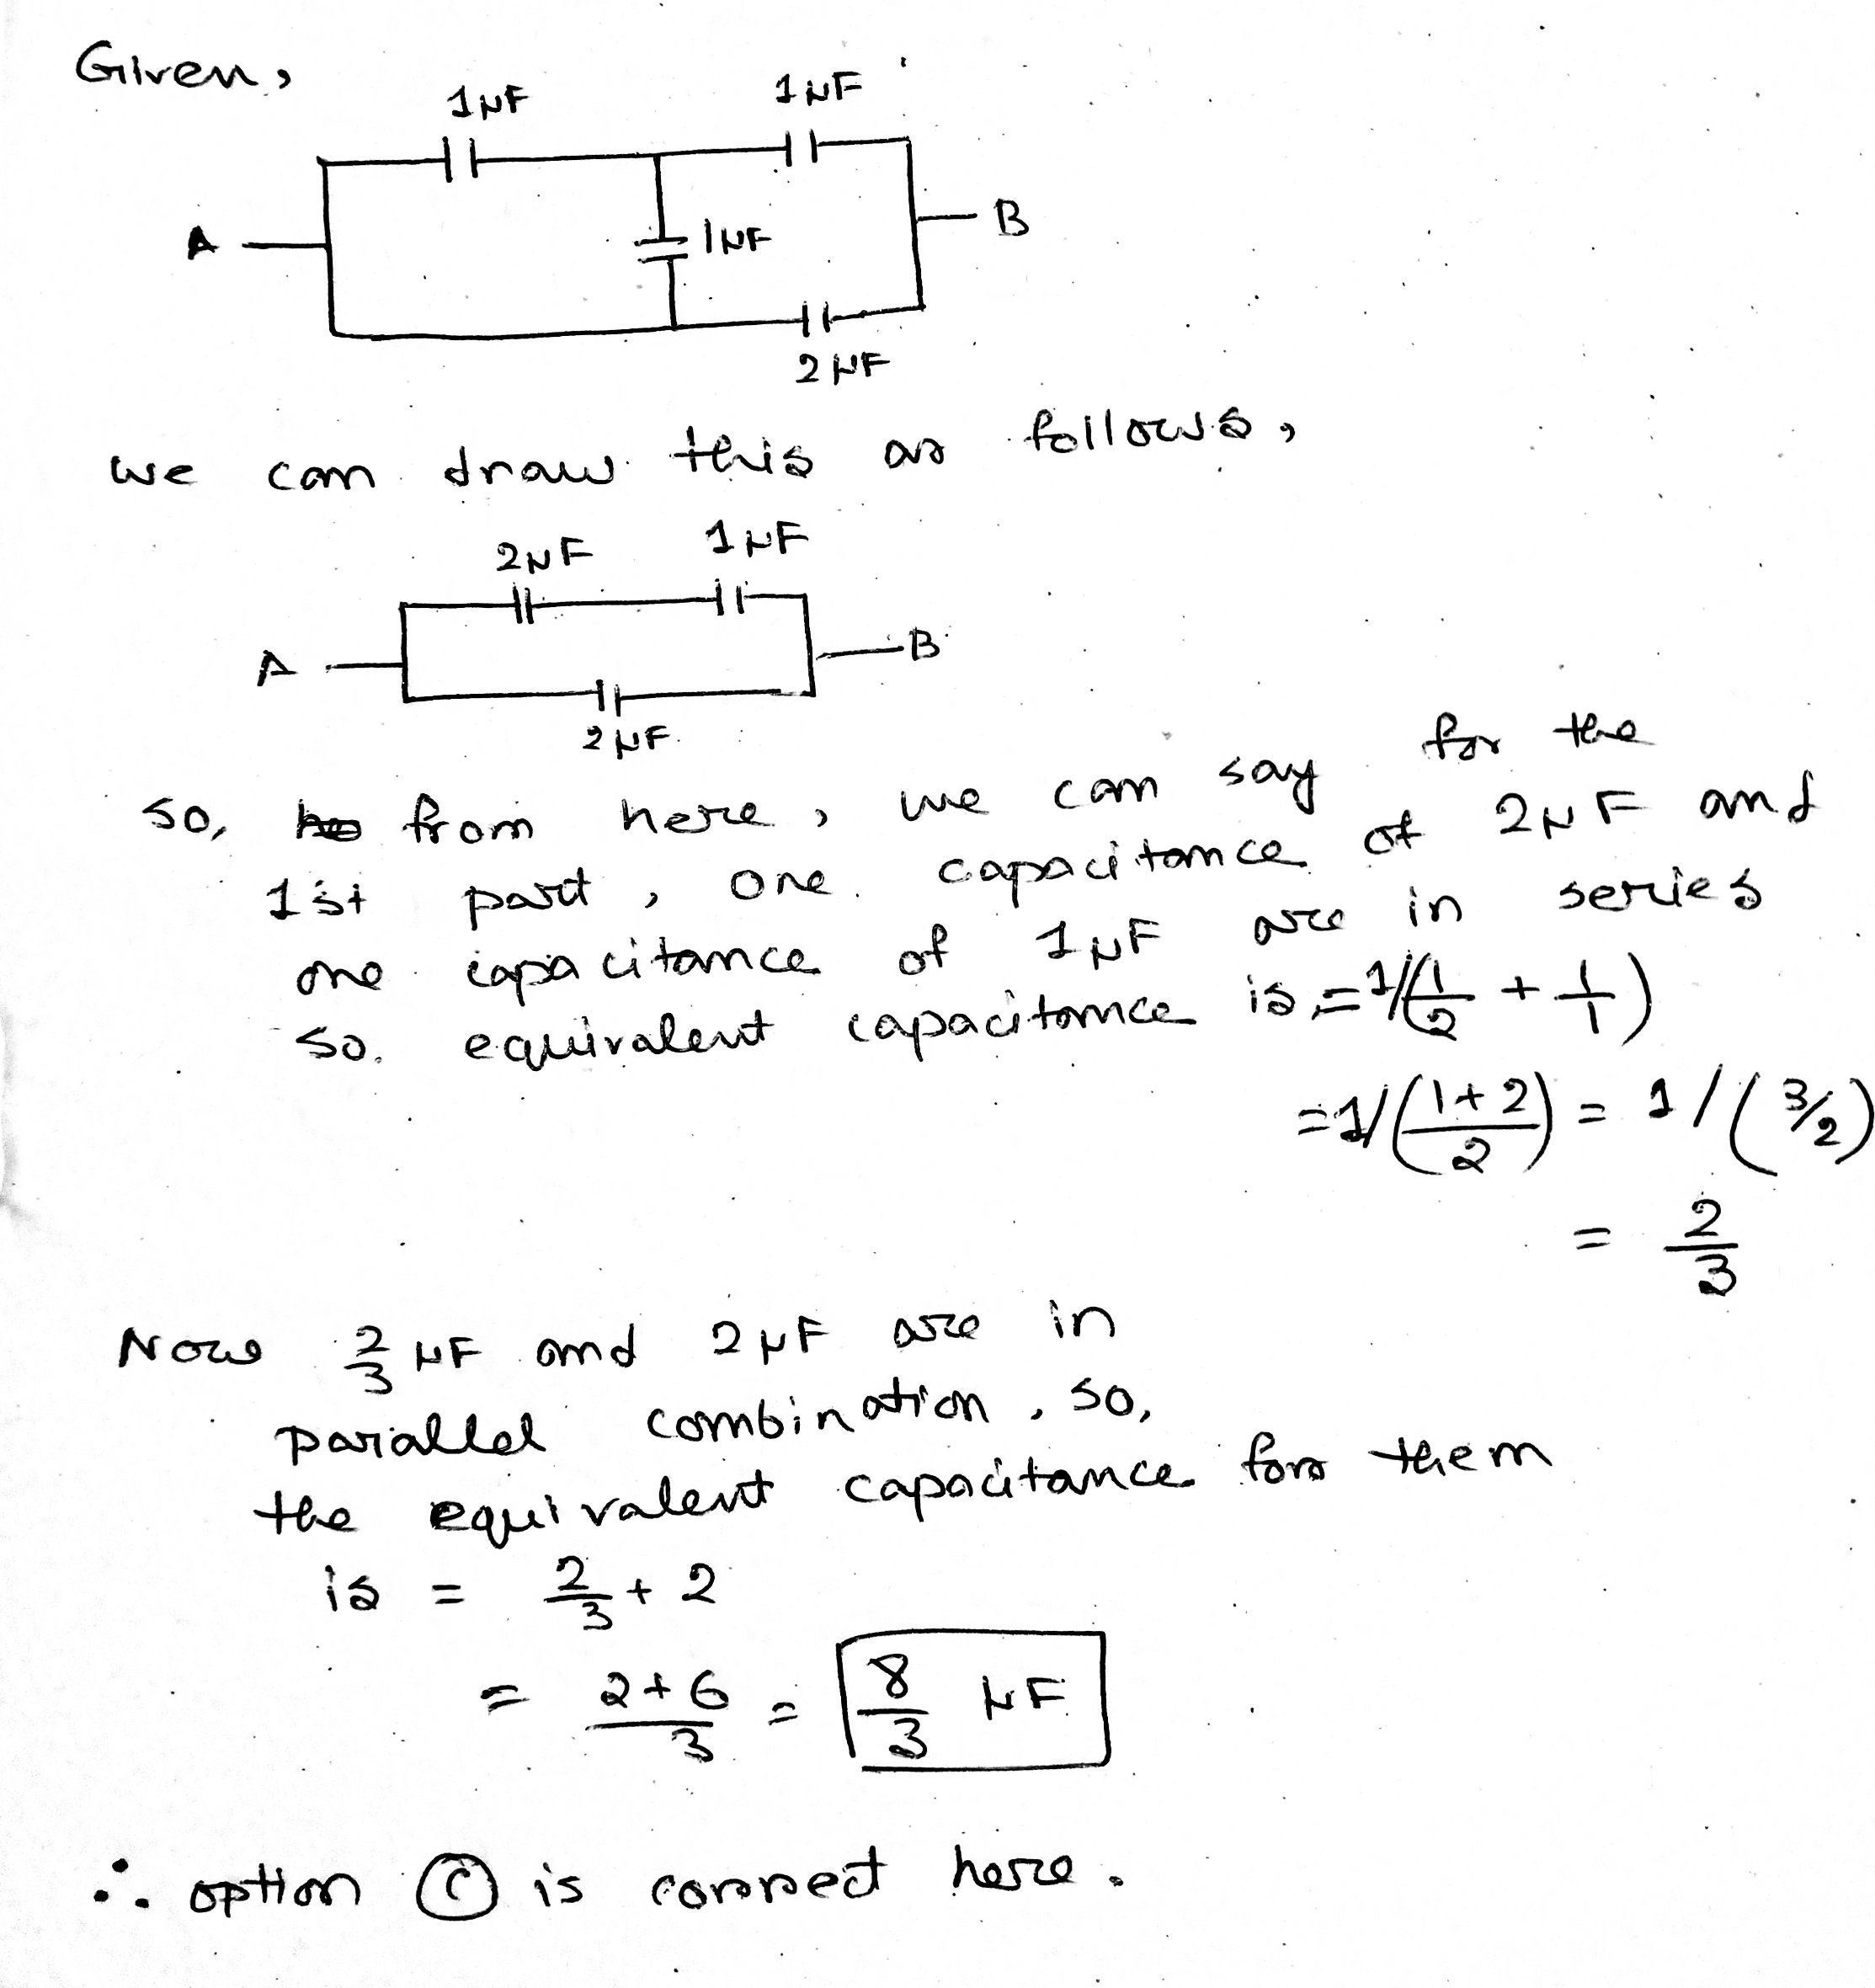 Given,
1μF 1μF
A 1μF B
2μF
we can draw this as follows,
2μF 1μF
A B
2μF
so, from here, we can say for the
1st part, one capacitance of 2μF and
one capacitance of 1μF are in series
so. equivalent capacitance is = 1/(1/2 + 1/1)
= 1/((1+2)/2) = 1/(3/2)
= 2/3
Now 2/3 μF and 2μF are in
parallel combination, so,
the equivalent capacitance for them
is = 2/3 + 2
= (2+6)/3 = 8/3 μF
∴ option (C) is correct here.